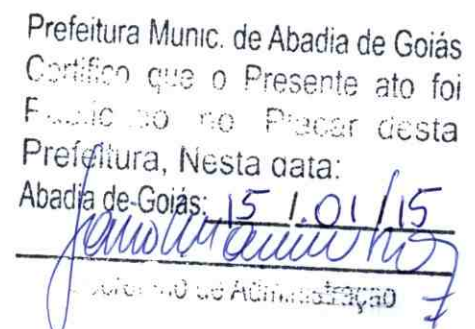 Prefeitura Munic. de Abadia de Goiás
Certifico que o Presente ato foi
no Placar desta
Prefeitura, Nesta data:
Abadia de Goiás: 15 / 01 / 15
de Administração